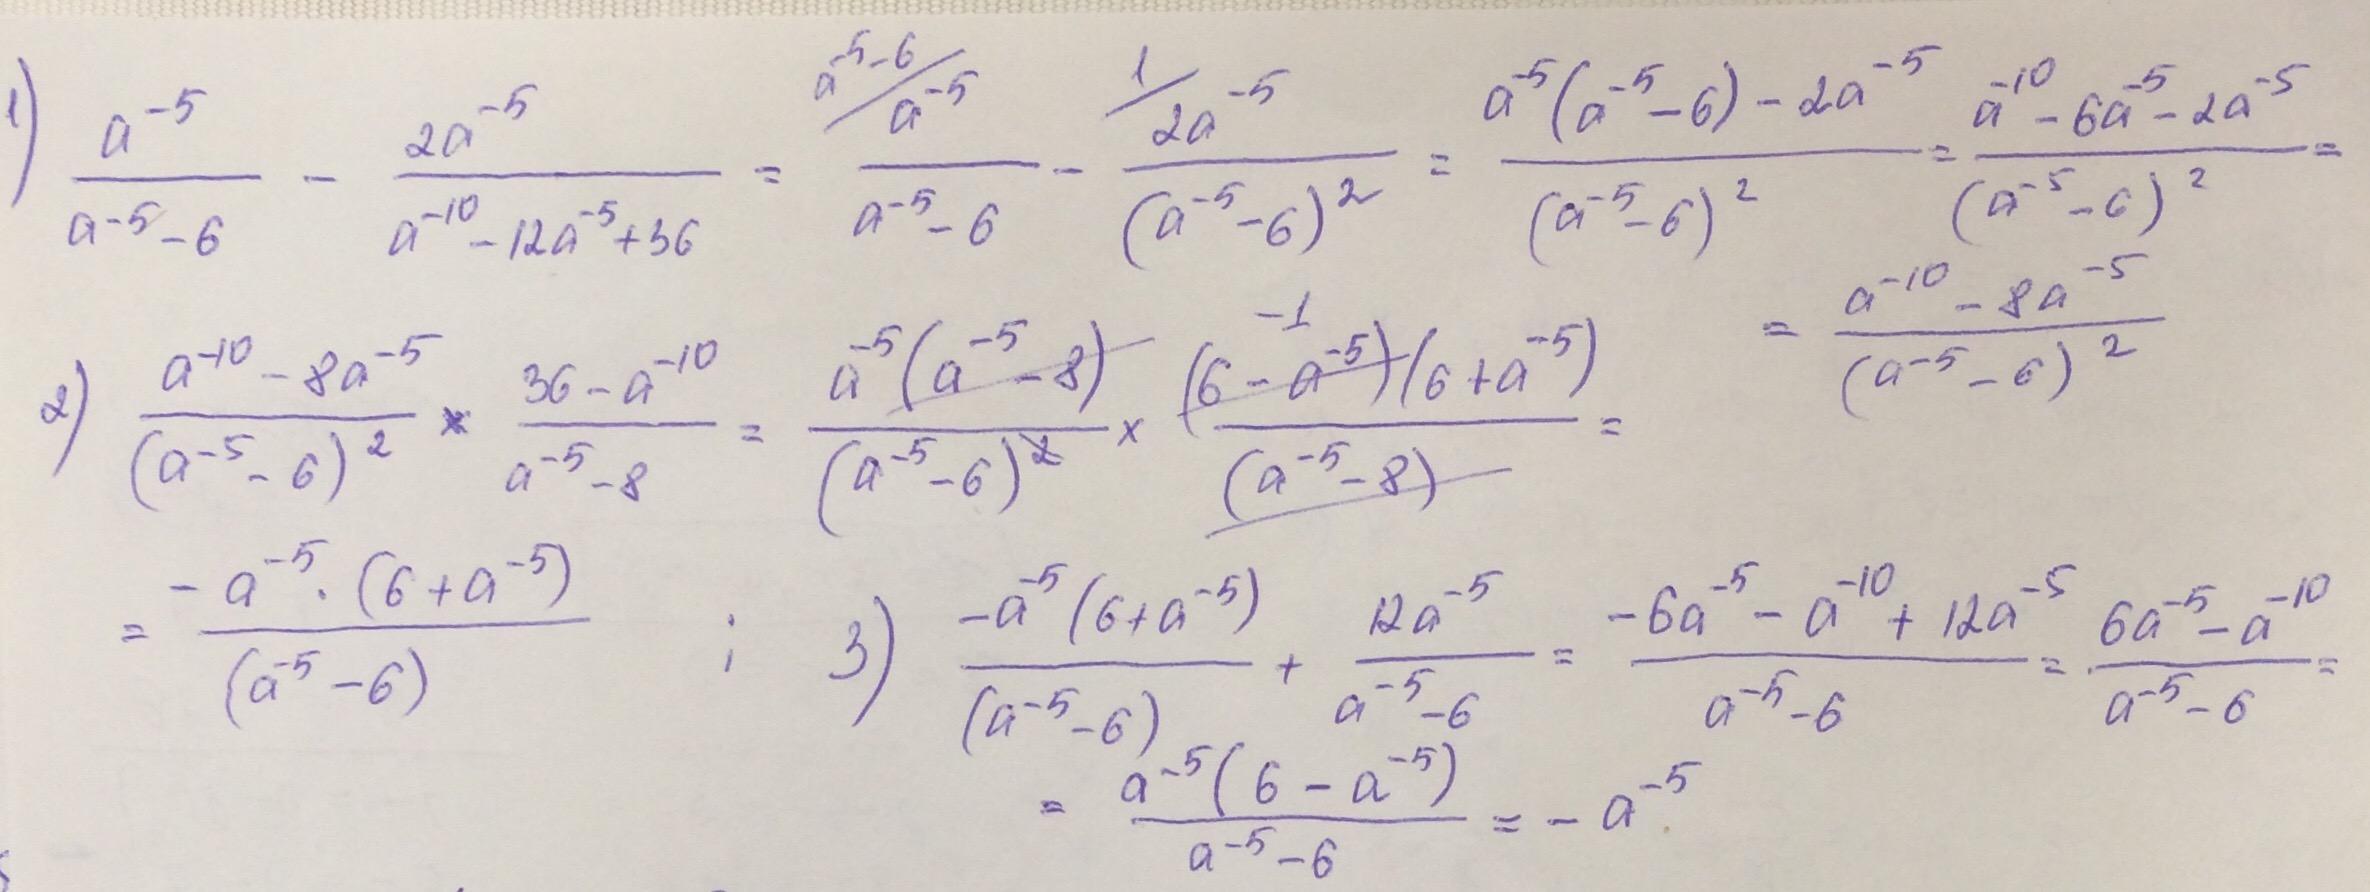 1) a⁻⁵/(a⁻⁵-6) - 2a⁻⁵/(a⁻¹⁰-12a⁻⁵+36) = a⁻⁵⁻⁶/ a⁻⁵/(a⁻⁵-6) - 1/ 2a⁻⁵/(a⁻⁵-6)² = (a⁻⁵(a⁻⁵-6)-2a⁻⁵)/(a⁻⁵-6)² = (a⁻¹⁰-6a⁻⁵-2a⁻⁵)/(a⁻⁵-6)² =
= (a⁻¹⁰-8a⁻⁵)/(a⁻⁵-6)²
2) (a⁻¹⁰-8a⁻⁵)/(a⁻⁵-6)² × (36-a⁻¹⁰)/(a⁻⁵-8) = a⁻⁵(a⁻⁵-8)/(a⁻⁵-6)² × -1 (6-a⁻⁵)(6+a⁻⁵)/(a⁻⁵-8) =
= -a⁻⁵·(6+a⁻⁵)/(a⁻⁵-6) ;
3) -a⁻⁵(6+a⁻⁵)/(a⁻⁵-6) + 12a⁻⁵/(a⁻⁵-6) = (-6a⁻⁵-a⁻¹⁰+12a⁻⁵)/(a⁻⁵-6) = (6a⁻⁵-a⁻¹⁰)/(a⁻⁵-6) =
= a⁻⁵(6-a⁻⁵)/(a⁻⁵-6) = -a⁻⁵.